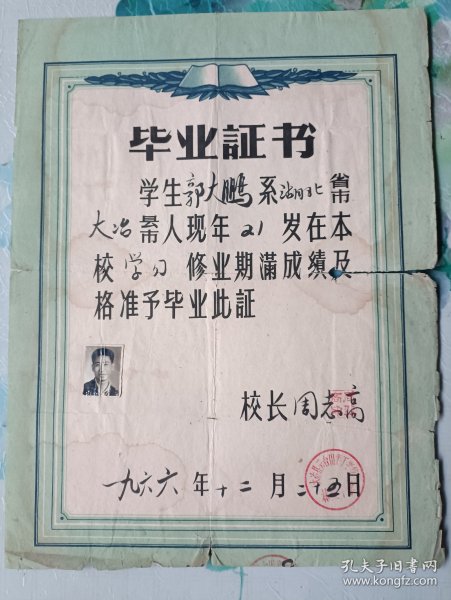 毕业証书
学生郭大鹏系湖北省市
大冶县市人现年21岁在本
校学习修业期滿成績及
格准予毕业此証
校长周志高
一九六六年十二月二十五日
孔夫子旧书网
www.kongfz.com